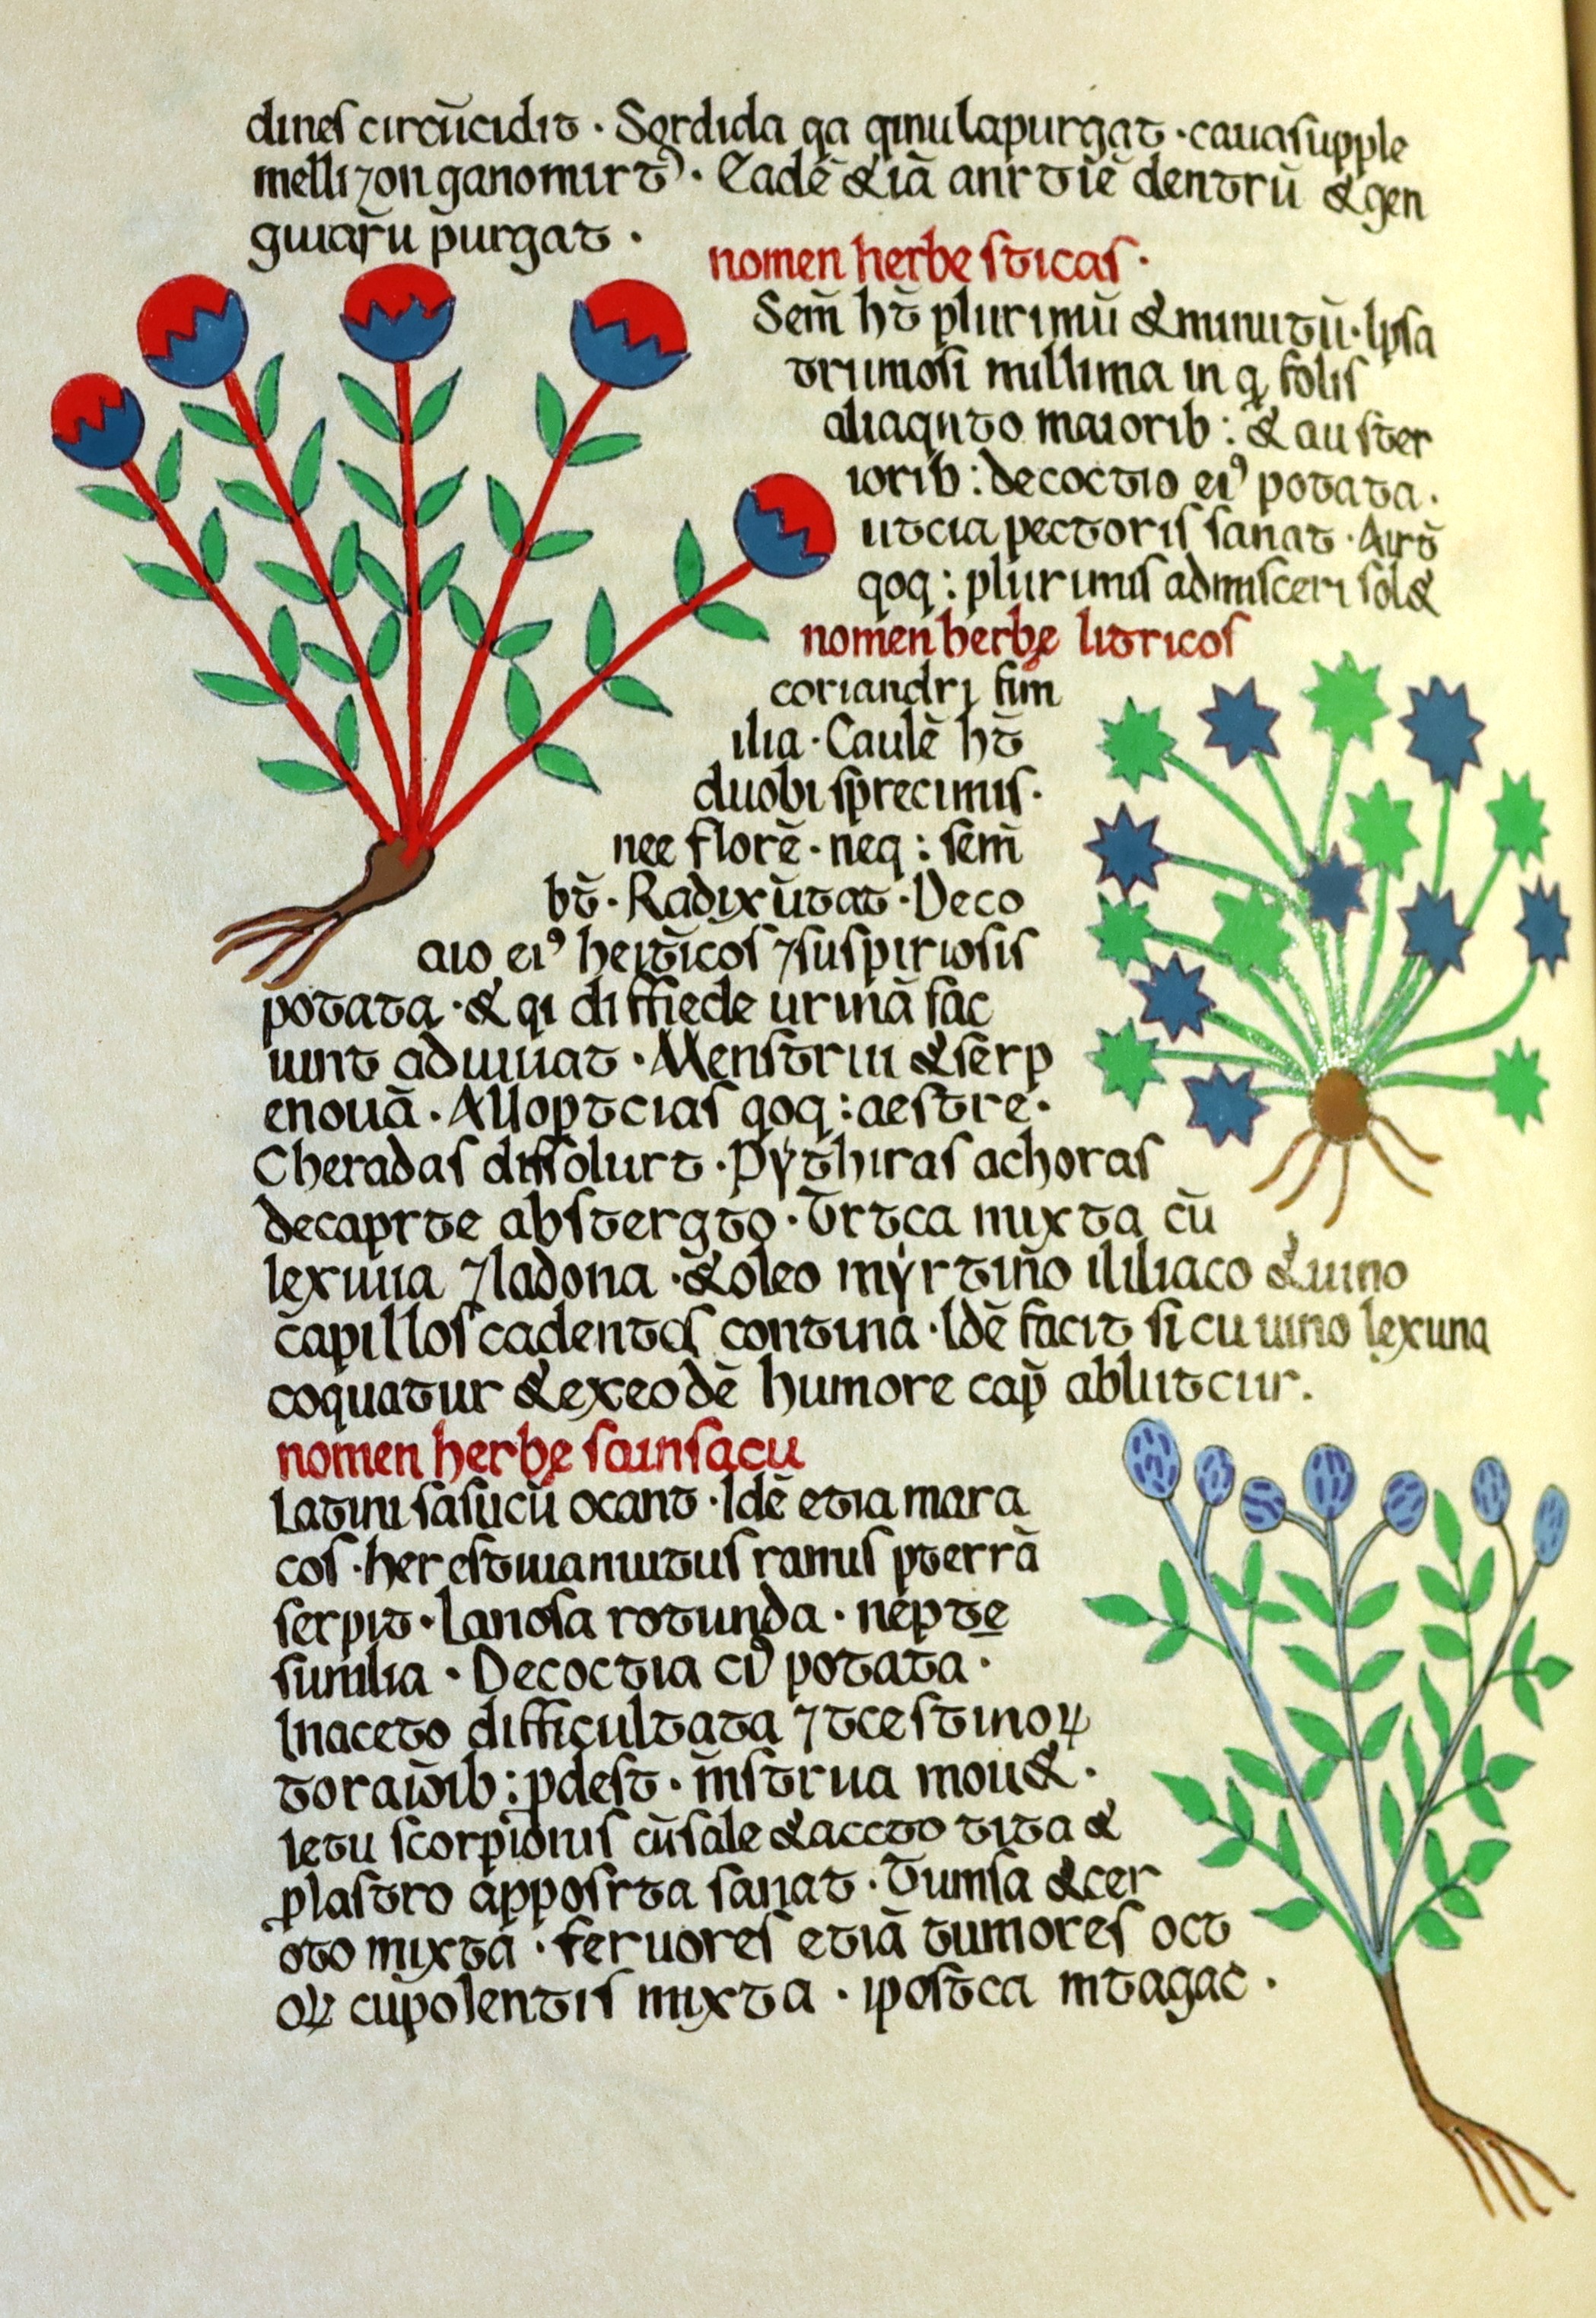 dines circūcidit · Sordida qa qinulapurgat · cauasupple
melli ⁊on ganomirt᾽ · Cadē &iā anrtiē dentrū &gen
guiaɼ̄u p̄urgat ·
nomen herbe sticas ·
Sem̄ ht̄ plurimū &minutū · Ipsa
trumosi millima in q folis
aliaqnto maiorib : & auster
iorib : decoctio ei᾽ potata ·
utcia pectoris sanat · Aurt̄
qoq : plurimis admisceri sol&
nomen herbe litricos
coriandri sim
ilia · Caulē ht̄
duobi sprecimis ·
nee florē · neq : sem̄
bt̄ · Radix ūtat · Deco
aio ei᾽ heitīcos ⁊suspiriosis
potata · & qi diffiede urinā fac
iunt adiuuat · Menstrui &serp
enouā · Alloptcias qoq : aestre ·
Cheradas dissolurt · Pythiras achoras
decaprte abstergto · Trtca mixta cū
lexiuia ⁊ladona · &oleo myrtin̄o ililiaco &uino
c̄apillos cadentes contina · Idē facit si cu uino lexuna
coquatur &exeodē humore cap̄ ablutcur.
nomen herbe sainsacu
Latini sasucū ocant · Idē etia mara
cos · her estuianuitus ramis pterrā
serpit · Lanosa rotunda · nepte
sumilia · Decoctia ci᾽ potata ·
Inaceto difficultata ⁊tcestinoꝝ
toraiōib : pdest · m̄strua mou& ·
letu scorpionis cūsale &accto tita &
plastro apposrta sanat · Tumsa &cer
oto mixta · feruores etiā tumores oct
oꝝ cupolentis mixta · ipostca mtagac ·